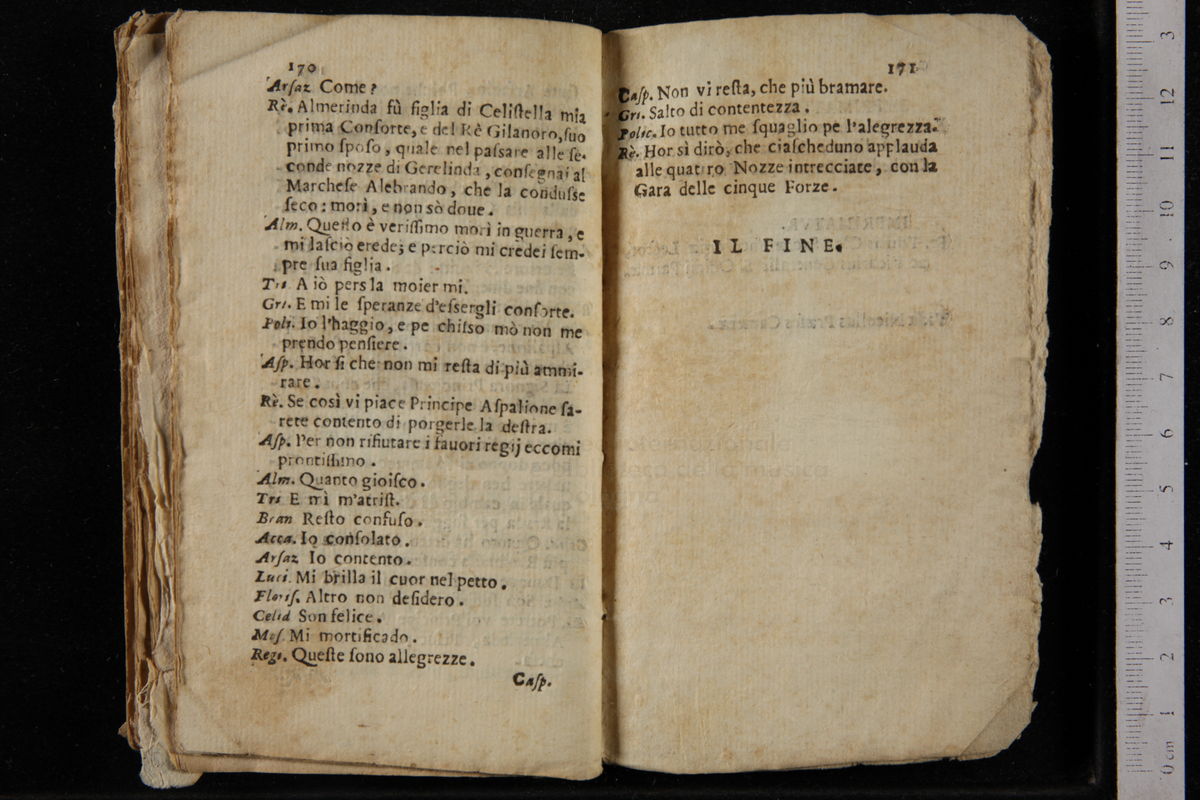 170
Arſaz. Come?
Rè. Almerinda fù figlia di Celiſtella mia
prima Conſorte, e del Rè Gilanoro, ſuo
primo ſpoſo, quale nel paſsare alle ſe-
conde nozze di Gerelinda, conſegnai al
Marcheſe Alebrando, che la conduſse
ſeco: morì, e non sò doue.
Alm. Queſto è veriſſimo morì in guerra, e
mi laſciò erede; e perciò mi credei ſem-
pre ſua figlia.
Tri. A iò pers la moier mi.
Gri. E mi le ſperanze d'eſsergli conſorte.
Poli. Io l'haggio, e pe chiſso mò non me
prendo penſiere.
Aſp. Hor ſi che non mi reſta di più ammi-
rare.
Rè. Se così vi piace Principe Aſpalione ſa-
rete contento di porgerle la deſtra.
Aſp. Per non rifiutare i fauori regij eccomi
prontiſſimo.
Alm. Quanto gioiſco.
Tri E mì m'atriſt.
Bran Reſto confuſo.
Acca. Io conſolato.
Arſaz Io contento.
Luci. Mi brilla il cuor nel petto.
Floriſ. Altro non deſidero.
Celid Son felice.
Moſ. Mi mortificado.
Rego. Queſte ſono allegrezze.
Caſp.
171
Caſp. Non vi reſta, che più bramare.
Gri. Salto di contentezza.
Polic. Io tutto me ſquaglio pe l'alegrezza.
Rè. Hor sì dirò, che ciaſcheduno applauda
alle quattro Nozze intrecciate, con la
Gara delle cinque Forze.
IL FINE.
0 cm 1 2 3 4 5 6 7 8 9 10 11 12 3